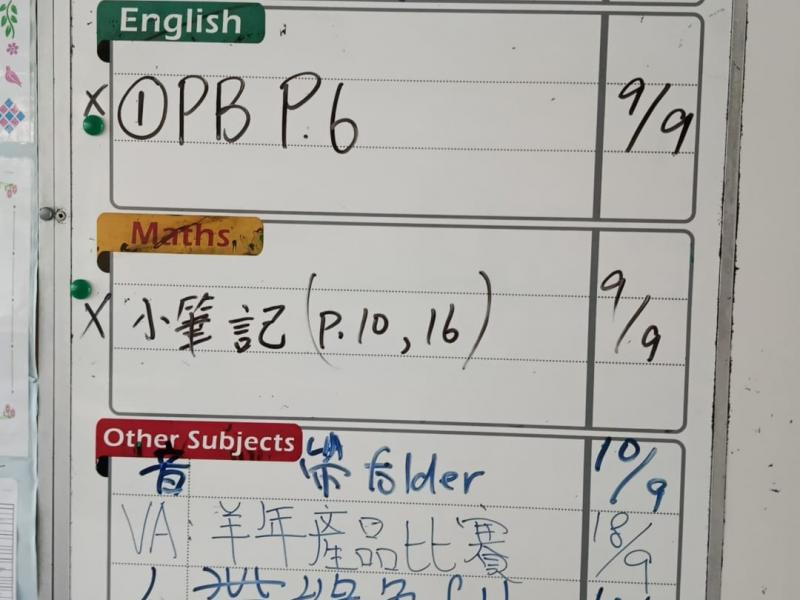 English
X ①PB P.6 9/9
Maths
X 小筆記(P.10,16) 9/9
Other Subjects
音 帶folder 10/9
VA 羊年產品比賽 18/9